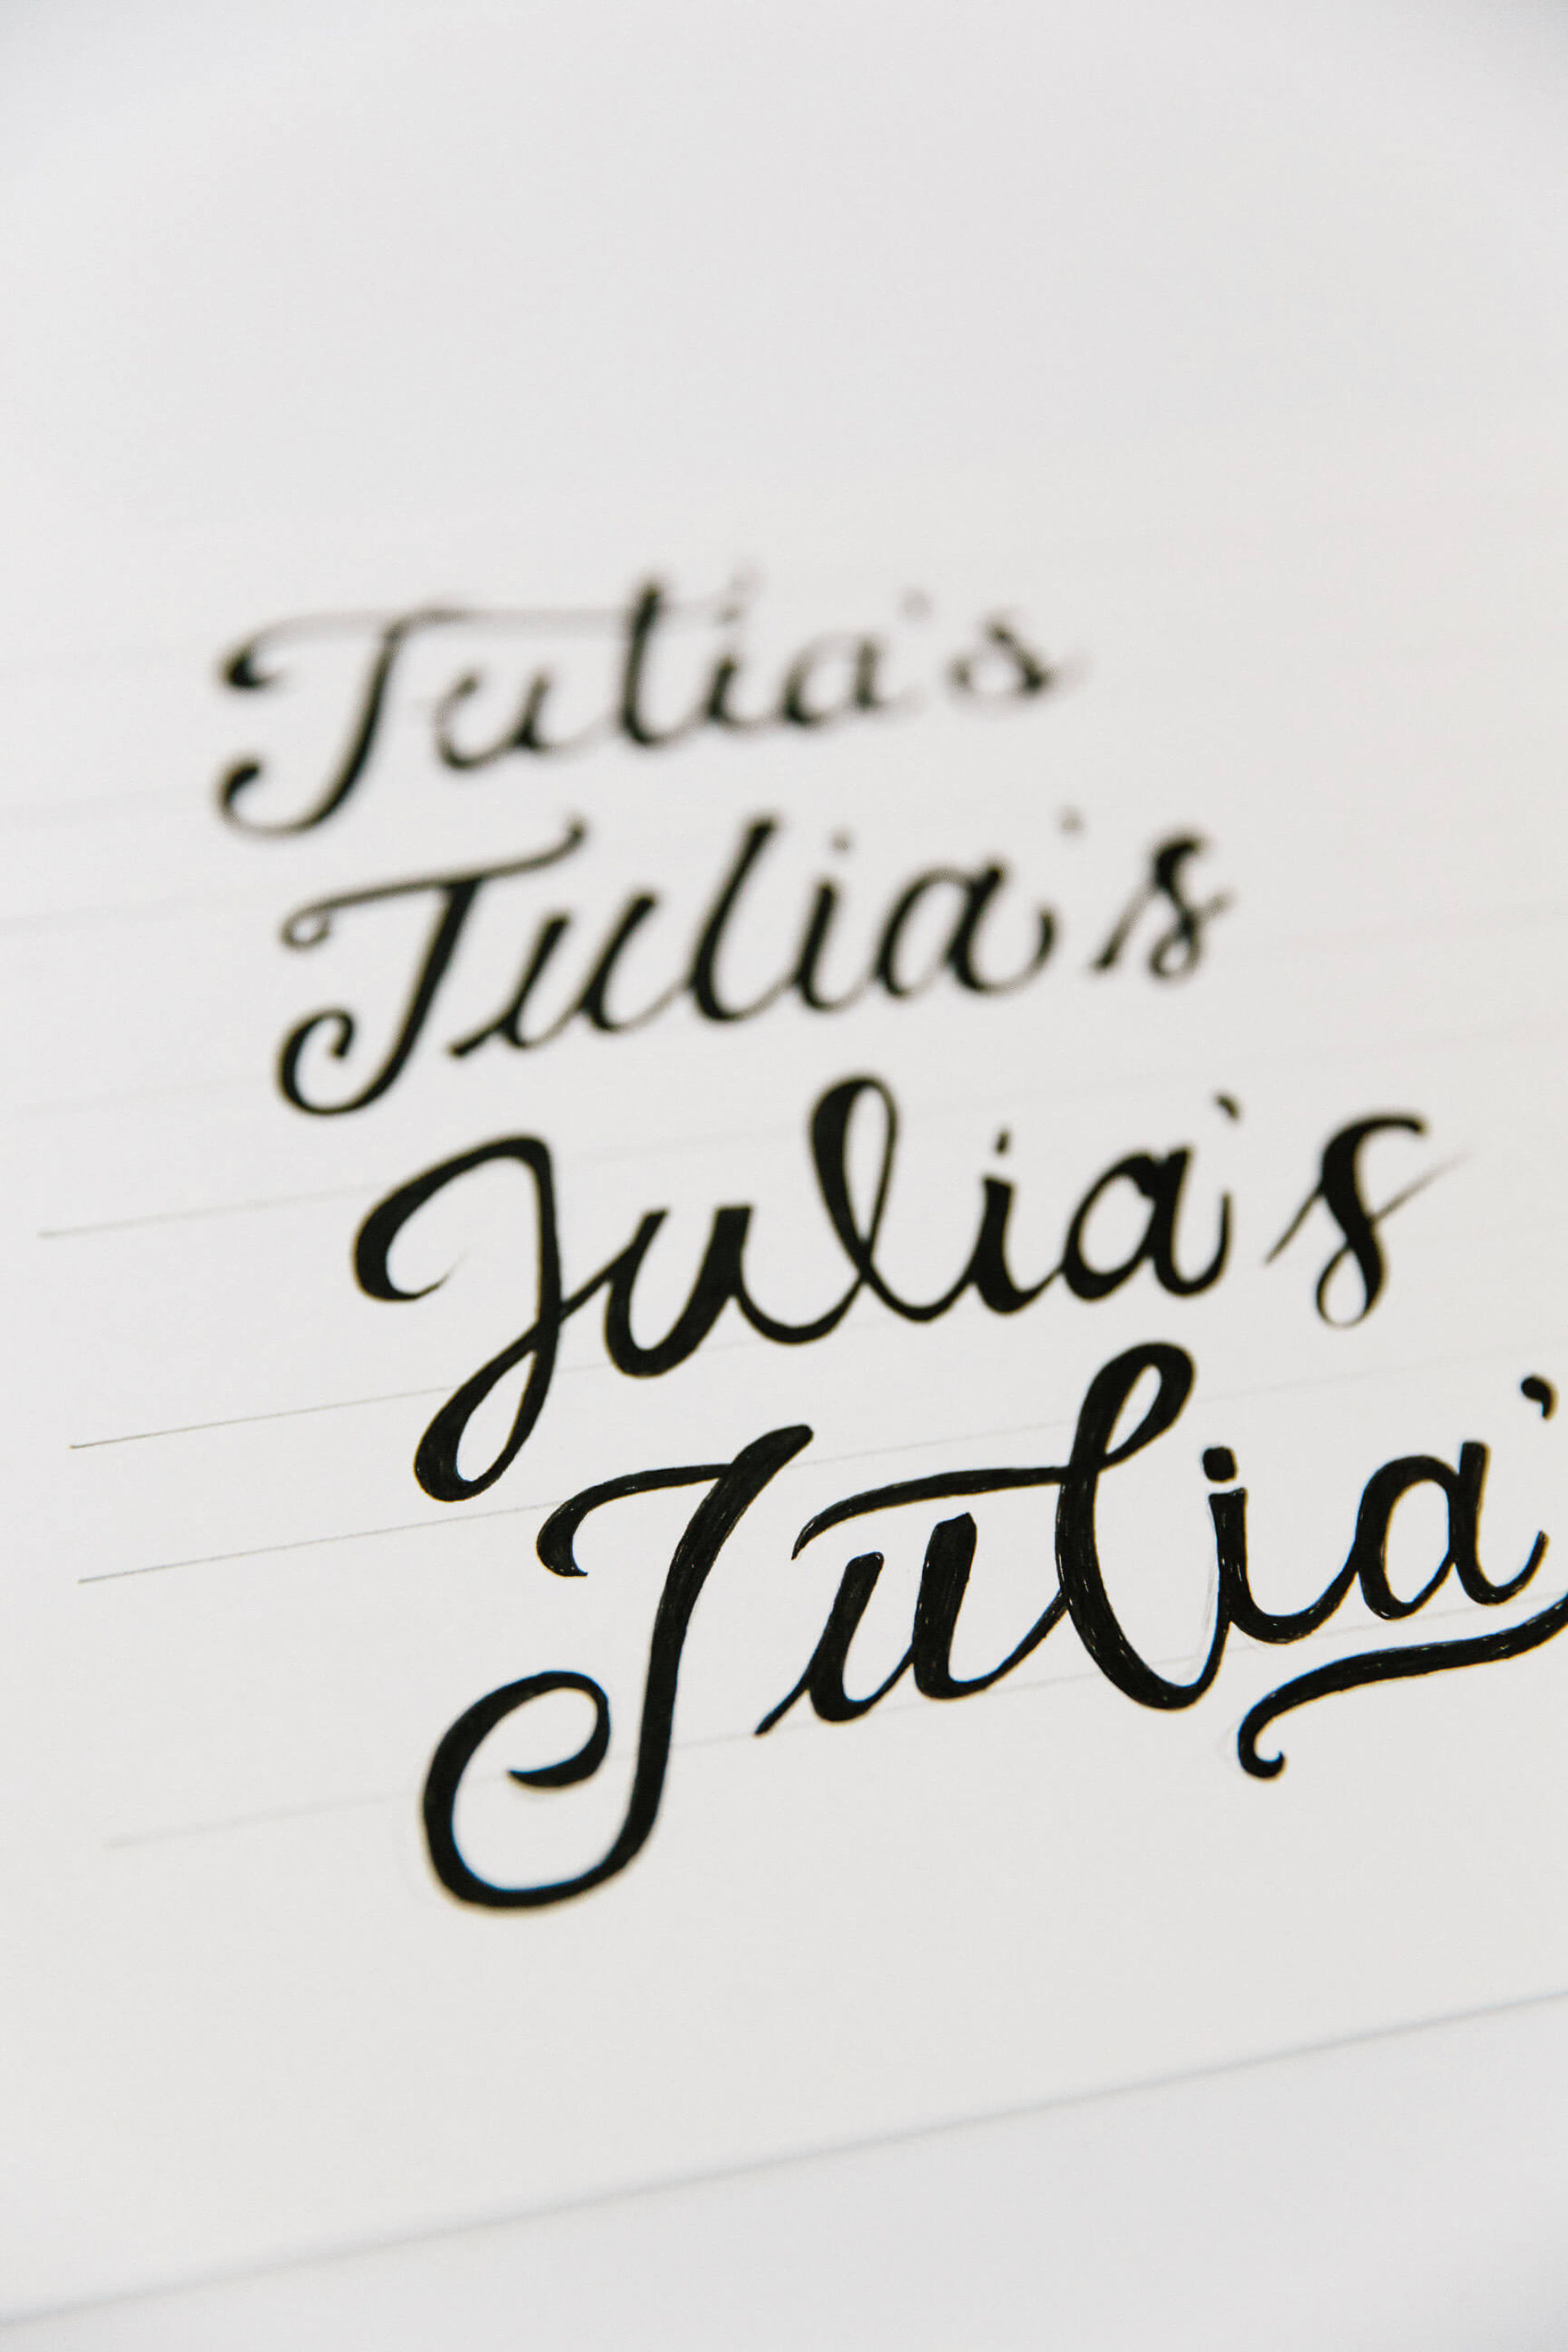 Julia's
Julia's
Julia's
Julia'